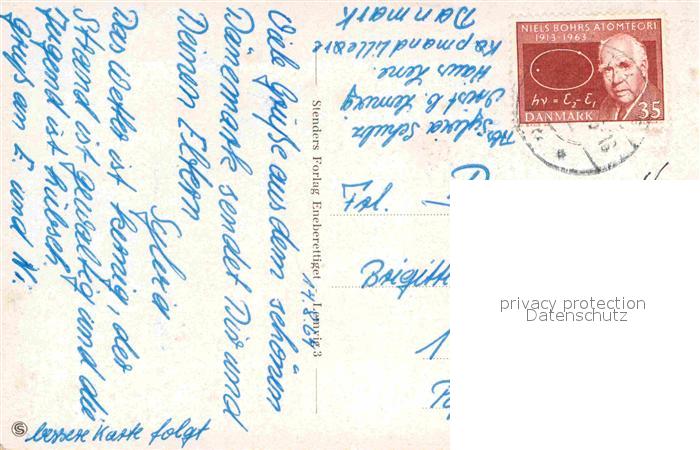 NIELS BOHRS ATOMTEORI
1913-1963
hν = E₂-E₁
DANMARK 35
Abs. Sylvia Schulz
b. Lemvig
Haus Lene
Danmark
14.8.64
Viele Grüße aus dem schönen
Dänemark sendet Dir und
Deinen Eltern
Sylvia
Das Wetter ist , der
Strand ist gewaltig und die
Jugend ist hübsch.
Gruß an E. und M.
bessere Karte folgt
Stenders Forlag Eneberettiget - Lemvig 3
S
Frl.
Brigitte
1
privacy protection
Datenschutz